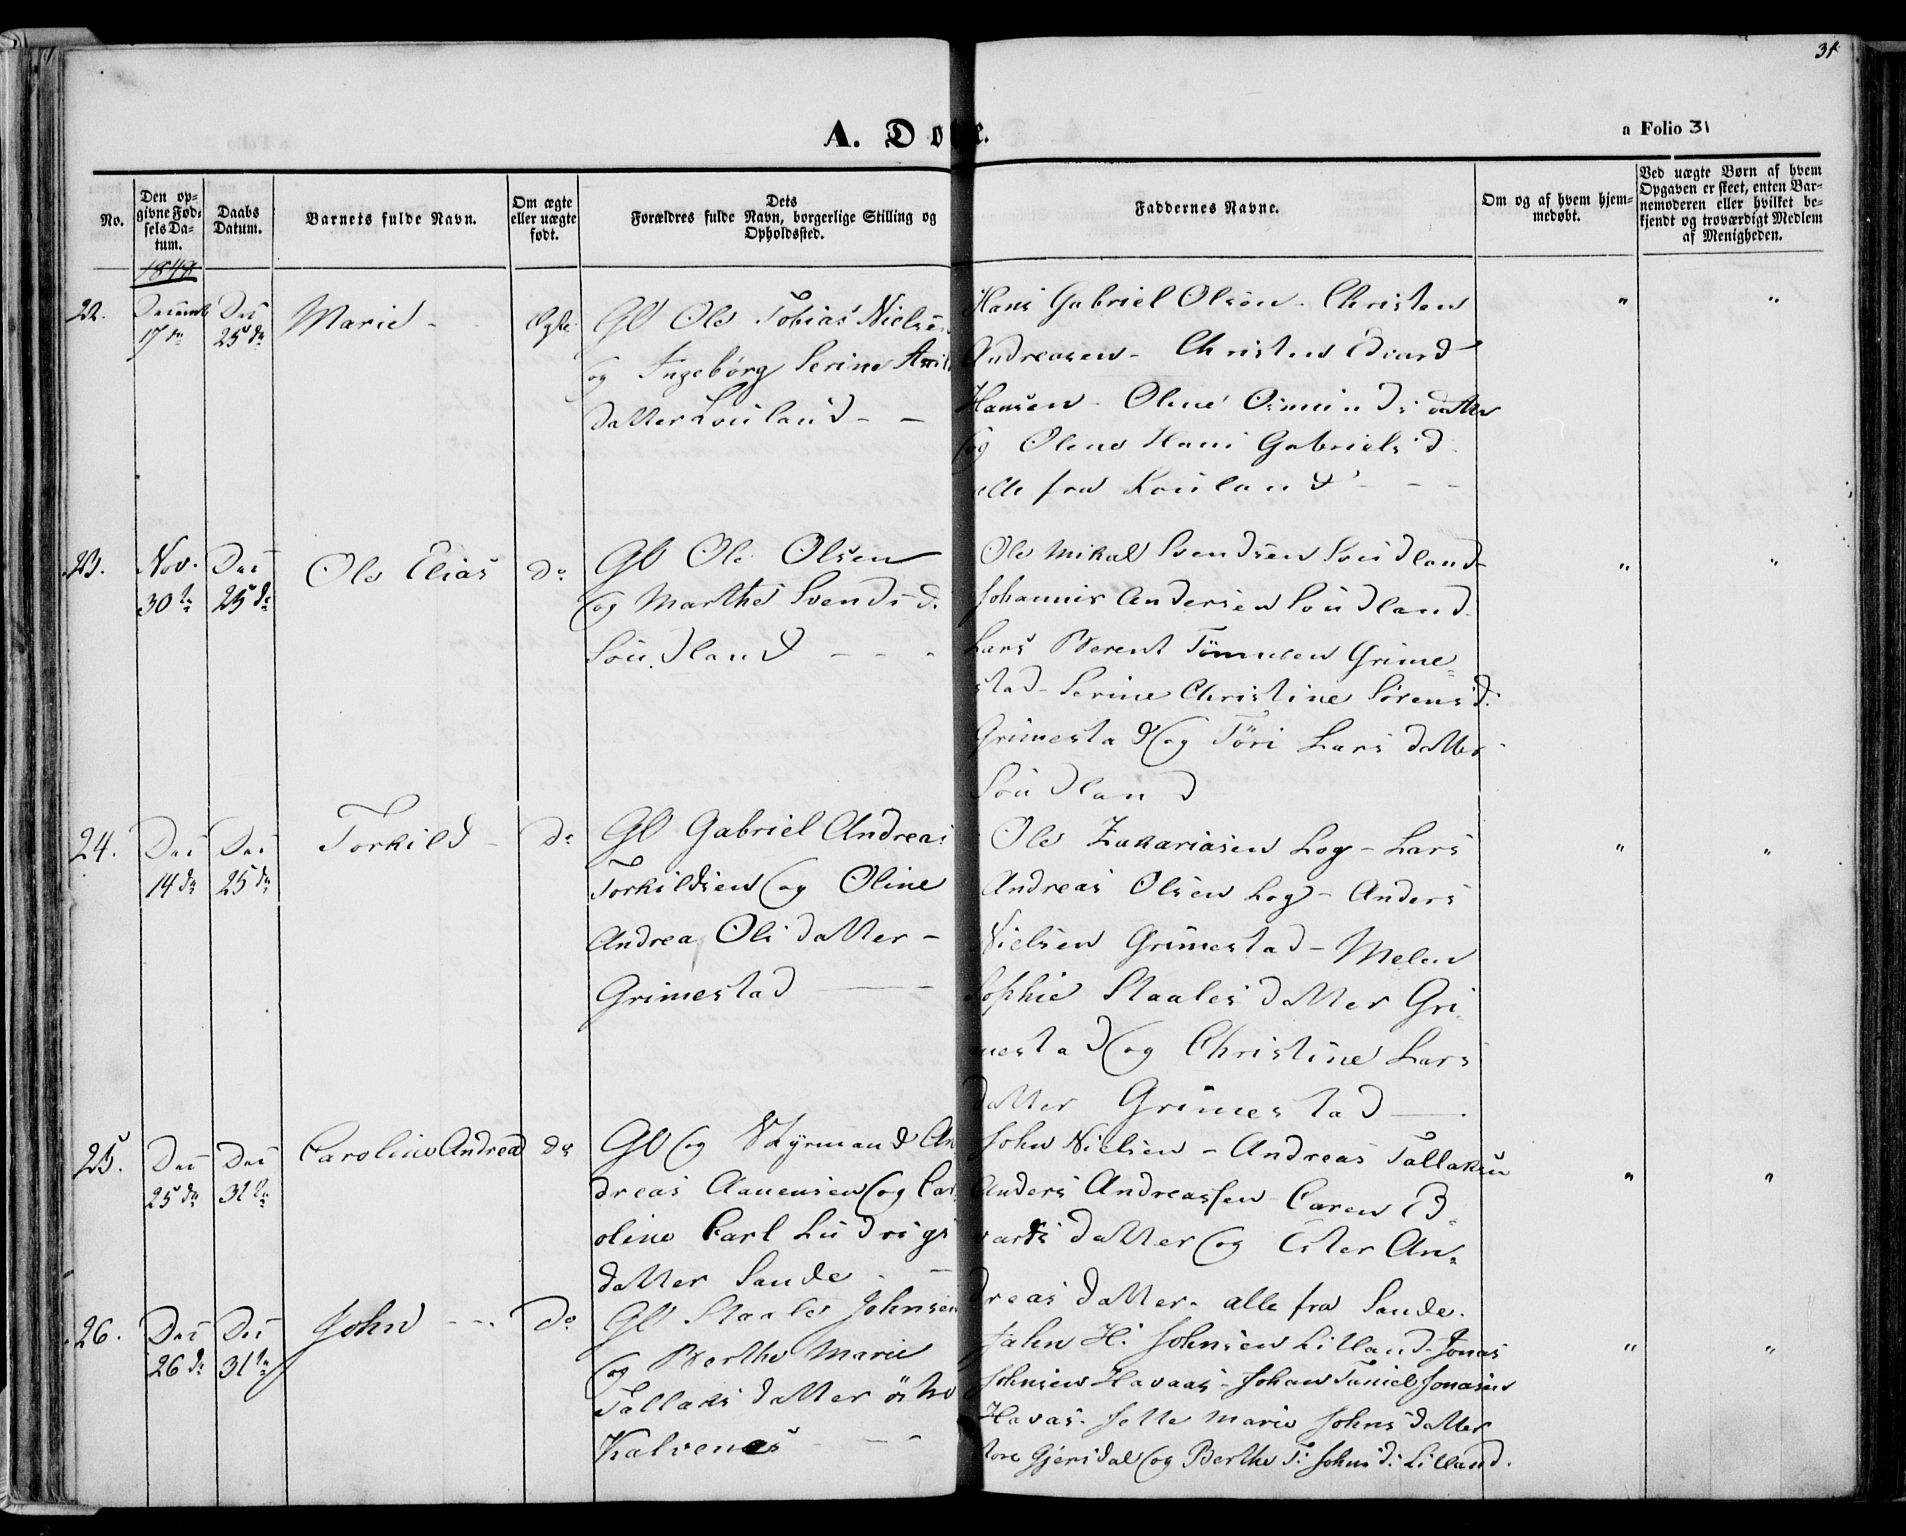 31
A. Døbte.
a Folio 31
No.
Den op-
givne Fød-
sels Da-
tum.
Daabs
Datum.
Barnets fulde Navn.
Om ægte
eller uægte
født.
Dets
Forældres fulde Navn, borgerlige Stilling og
Opholdssted.
Faddernes Navne.
Om og af hvem hjem-
medøbt.
Ved uægte Børn af hvem
Opgaven er skeet, enten Bar-
nemoderen eller hvilket be-
kjendt og troværdigt Medlem
af Menigheden.
22.
17de
Dec
25de
Marie -
Ægte
Gb Ole Tobias Nielsen
og Ingebørg Serine
datter - -
Hans Gabriel Olsen - Christen
Andreasen - Christen Edvard
Hansen - Oline Osmunds datter
og Olene Hans Gabriels d
alle fra - - -
"
"
23.
Nov.
30te
Dec
25de
Ole Elias
do
Gb Ole Olsen
og Marthe Svends d.
Søudland - - -
Ole Mikal Svendsen Søudland
Johannes Andersen Søudland
Lars Berent Tömmesen Grime=
stad - Serine Christine Sørens d.
Grimestad og Töri Lars datter
Søudland
"
"
24.
Dec
14de
Dec
25de
Torkild -
do
Gb Gabriel Andreas
Torkildsen og Oline
Andrea Ols datter -
Grimestad -
Ole Zakariasen Log - Lars
Andreas Olsen Log - Anders
Nielsen Grimestad - Melen
Sophie Staales datter Gri
mestad og Christine Lars
datter Grimestad -
"
"
25.
Dec
25de
Dec
31te
Caroline Andrea
do
Gb og Styrmand An
dreas Aanensen og Car
oline Carl Ludvigs
datter Sande - -
John Nielsen - Andreas Tallaksen
Anders Andreassen - Caren E
vards datter og Ester An=
dreas datter - alle fra Sande.
"
"
26.
Dec
26de
Dec
31te
John - - -
do
Gb Staale Johnsen
og Berthe Marie
Tallaks datter östre
Kalvenes - - -
John H. Johnsen Lilland - Jonas
Johnsen Havaas - Johan Daniel Jonasen
Havas. Jette Marie Johns datter
store Gjersdal og Berthe T. Johns d. Lilland.
"
"